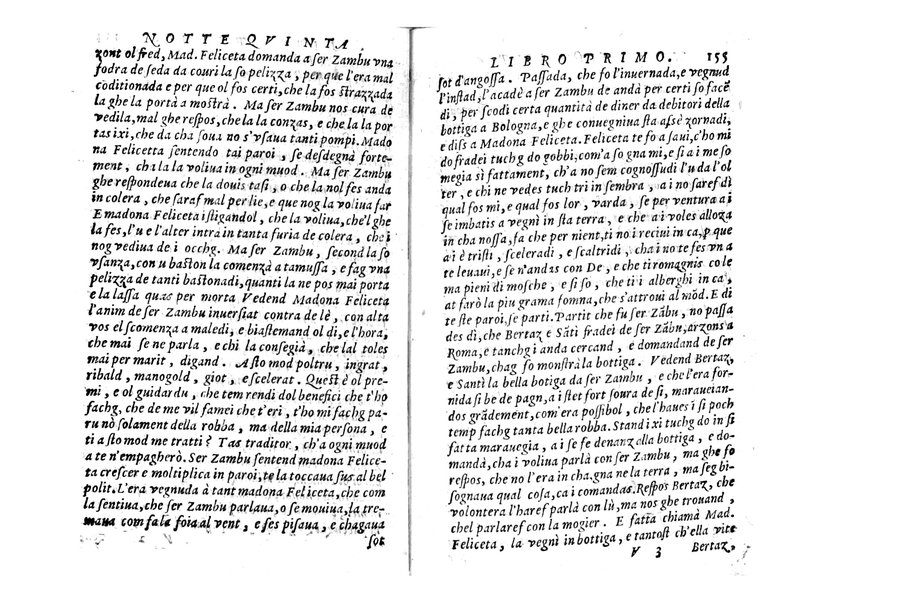 NOTTE QVINTA
zont ol fred, Mad. Feliceta domanda a ser Zambu vna
fodra de seda da couri la so pelizza, per que l'era mal
coditionada e per que ol fos certi, che la fos strazzada
la ghe la portà a mostrà. Ma ser Zambu nos cura de
vedila, mal ghe respos, che la la conzas, e che la la por
tas ixi, che da cha soua no s'vsaua tanti pompi. Mado
na Felicetta sentendo tai paroi, se desdegnà forte-
ment, cha la la voliua in ogni muod. Ma ser Zambu
ghe respondeua che la douis tasi, o che la nol fes anda
in colera, che saraf mal per lie, e que nog la voliua far
E madona Feliceta istigandol, che la voliua, che'l ghe
la fes, l'u e l'alter intrà in tanta furia de colera, che i
nog vediua de i occhg. Ma ser Zambu, second la so
vsanza, con u baston la comenzà a tamussa, e fag vna
pelizza de tanti bastonadi, quanti la ne pos mai porta
e la lassa quas per morta Vedend Madona Feliceta
l'anim de ser Zambu inuersiat contra de lè, con alta
vos el scomenza a maledi, e biastemand ol di, e l'hora,
che mai se ne parla, e chi la consegià, che lal toles
mai per marit, digand. A sto mod poltru, ingrat,
ribald, manogold, giot, e scelerat. Quest è ol pre-
mi, e ol guidardu, che tem rendi dol benefici che t'ho
fachg, che de me vil famei che t'eri, t'ho mi fachg pa-
ru nò solament della robba, ma della mia persona, e
ti a sto mod me tratti? Tas traditor, ch'a ogni muod
a te n'empagherò. Ser Zambu sentend madona Felice-
ta crescer e moltiplica in paroi, te la toccaua sus al bel
polit. L'era vegnuda à tant madona Feliceta, che com
la sentiua, che ser Zambu parlaua, o se mouiua, la tre-
maua com fa le foia al vent, e ses pisaua, e chagaua
sot
LIBRO PRIMO. 155
sot d'angossa. Passada, che fo l'inuernada, e vegnud
l'instad, l'acadè a ser Zambu de andà per certi so facẽ
di, per scodi certa quantità de diner da debitori della
bottiga a Bologna, e ghe conuegniua sta assè zornadi,
e diss a Madona Feliceta. Feliceta te fo a saui, c'ho mi
do fradei tuchg do gobbi, com'a so gna mi, e si a i me so
megia sì fattament, ch'a no sem cognossudi l'u da l'ol
ter, e chi ne vedes tuch tri insembra, a i no saref dì
qual fos mi, e qual fos lor, varda, se per ventura a i
se imbatis a vegnì in sta terra, e che a i voles alloza
in cha nossa, fa che per nient, ti no i reciui in ca, p que
a i è tristi, sceleradi, e scaltridi, cha i no te fes vn a
te leuaui, e se n'andas con De, e che ti romagnis co le
ma pieni di mosche, e si so, che ti i alberghi in ca,
at farò la piu grama fomna, che s'attroui al mõd. E di
te ste paroi, se parti. Partit che fu ser Zãbu, no passa
des di, che Bertaz e Sãti fradei de ser Zãbu, arzons a
Roma, e tanchg i anda cercand, e domandand de ser
Zambu, chag fo monstrà la bottiga. Vedend Bertaz,
e Santì la bella botiga da ser Zambu, e che l'era for-
nida si be de pagn, a i stet fort soura de sì, maraueian-
dos grãdement, com'era possibol, che l'haues i sì poch
temp fachg tanta bella robba. Stand i xi tuchg do in sì
fatta marauegia, a i se fe denanz alla bottiga, e do-
mandà, cha i voliua parlà con ser Zambu, ma ghe fo
respos, che no l'era in cha, gna ne la terra, ma seg bi-
sognaua qual cosa, ca i comandas. Respos Bertaz, che
volontera l'haref parlà con lù, ma nos ghe trouand,
chel parlaref con la mogier. E fatta chiamà Mad.
Feliceta, la vegnì in bottiga, e tantost ch'ella vite
V 3 Bertaz,